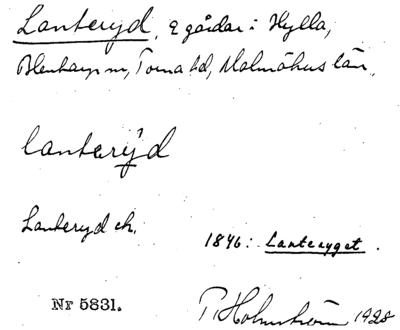 Lanteryd, 2 gårdar i Hylla,
Blentarps sn, Torna hd, Malmöhus län.
lanterȳd
Lanteryd ek.
1846: Lanteryget.
Nr 5831.
P. Holmström 1928